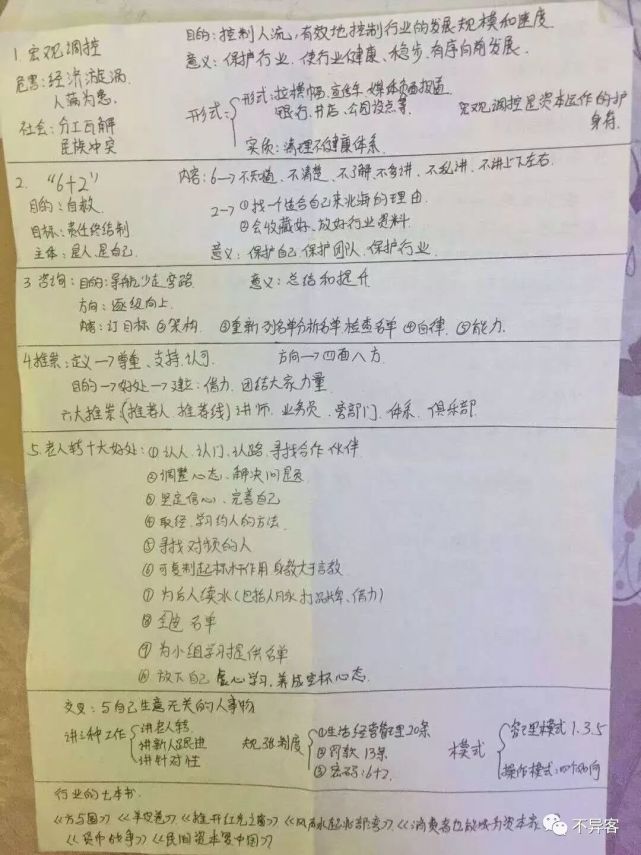 1. 宏观调控
目的:控制人流,有效地控制行业的发展规模和速度.
意义:保护行业、使行业健康、稳步、有序向前发展.
危害:经济漩涡
人满为患.
社会:分工瓦解
民族冲突
形式
形式:拉横幅 宣传车 媒体负面报道
银行、书店、公园设点等.
实质:清理不健康体系.
宏观调控是资本运作的护身符.
2. “6+2”
内容:6→不知道、不清楚、不了解、不多讲、不乱讲、不讲上下左右.
目的:自救.
2→①找一个适合自己来北海的理由.
目标:责任终结制
②会收藏好、放好行业资料
主体:是人、是自己.
意义:保护自己 保护团队、保护行业.
3 咨询:目的:导航少走弯路
意义:总结和提升
方向:逐级向上.
内容:订目标 ②架构 ③重新列名单分析名单 检查名单 ④自律. ⑤能力.
4 推崇:定义→尊重、支持、认可
方向→四面八方
目的→好处→建立:借力 团结大家力量
六大推崇(推荐人 推荐线)讲师、业务员、窗部门、体系、俱乐部.
5. 老人转十大好处:①认人、认门、认路、寻找合作伙伴
②调整心态、解决问题
③坚定信心、完善自己
④取经、学习约人的方法.
⑤寻找对频的人
⑥可复制起标杆作用 身教大于言教
⑦为后人续水(包括人脉 打品牌、借力)
⑧名单
⑨为小组学习提供名单
⑩放下自己 虚心学习,养成空杯心态.
交叉:与自己生意无关的人事物
讲三种工作
讲老人转.
讲新人跟进
讲针对性
规张制度
①生活经营管理20条
②罚款13条
③密码:6+2.
模式
管理模式1.3.5
操作模式:
行业的七本书.
《方与圆》《羊皮卷》《推开红光之窗》《风生水起北部湾》《消费者也能成为资本家》
《货币战争》《民间资本冀中国》
不异客